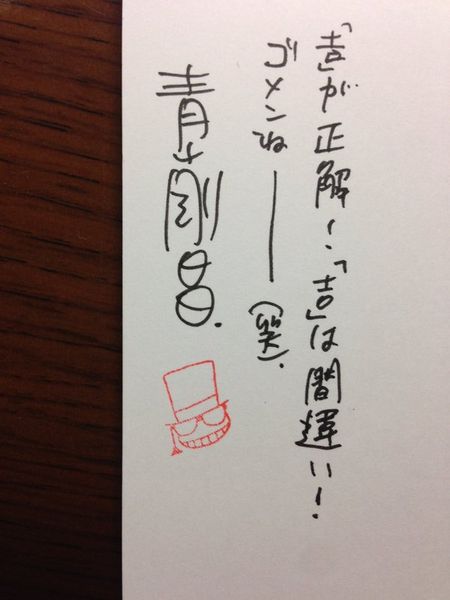 「吉」が正解!「𠮷」は間違い!
ゴメンねー(笑).
青山剛昌.